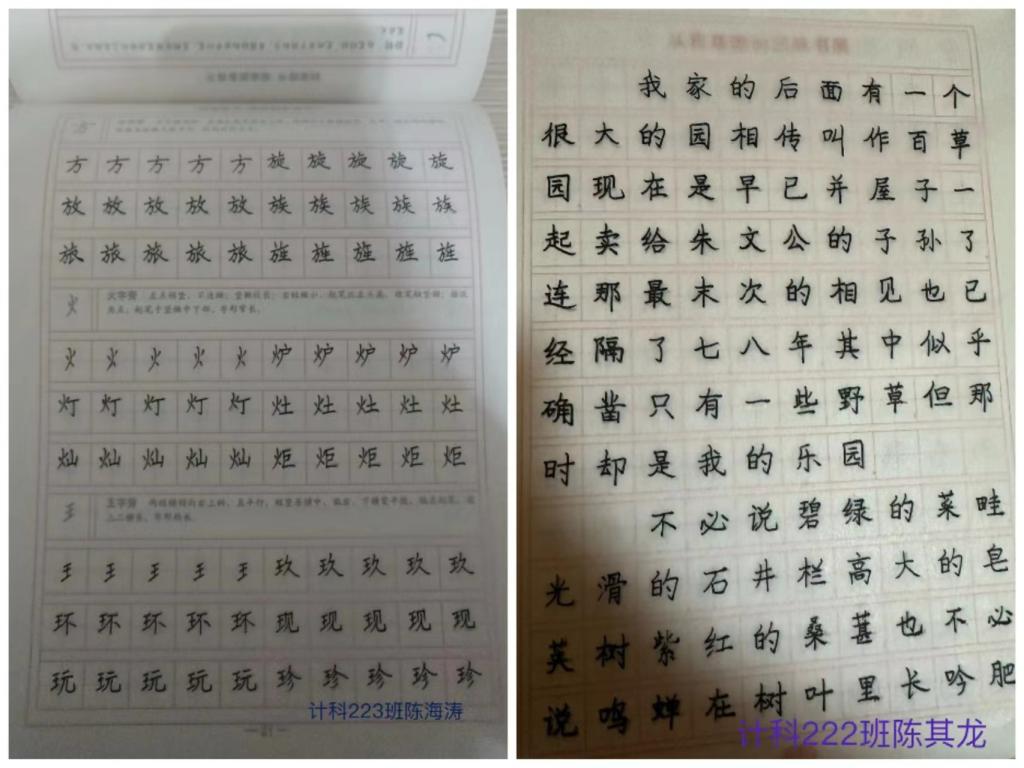 方 方 方 方 方 方 旋 旋 旋 旋 旋
放 放 放 放 放 族 族 族 族 族
旅 旅 旅 旅 旅 旌 旌 旌 旌 旌
火 火字旁
火 火 火 火 火 炉 炉 炉 炉 炉
灯 灯 灯 灯 灯 灶 灶 灶 灶 灶
灿 灿 灿 灿 灿 炬 炬 炬 炬 炬
王 王字旁
王 王 王 王 王 玖 玖 玖 玖 玖
环 环 环 环 环 现 现 现 现 现
玩 玩 玩 玩 玩 珍 珍 珍 珍 珍
计科223班陈海涛
我家的后面有一个
很大的园相传叫作百草
园现在是早已并屋子一
起卖给朱文公的子孙了
连那最末次的相见也已
经隔了七八年其中似乎
确凿只有一些野草但那
时却是我的乐园
不必说碧绿的菜畦
光滑的石井栏高大的皂
荚树紫红的桑葚也不必
说鸣蝉在树叶里长吟肥
计科222班陈其龙